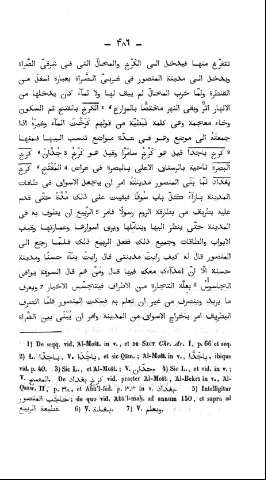 ۴۸۶
تتفرّع منها فيدخل الى الكرخ والمحالّ التى فى غربىّ الصَّراة
ويدخل الى مدينة المنصور فى غربىّ الصراة بعبارة اسفل من
القنطرة ولمّا خرب المحالّ لم يبق لها ولا لماء كان يدخلها من
الانهار اثر وبقى النهر مختصًّا بالمزارع * الكَرْخ بالفتح ثم السكون
وخاء معجمة وهى كلمة نبطيّة من قولهم كَرَخْتُ الماء وغيره اذا
جمعته الى موضع وهو فى عدة مواضع تنسب اليها فمنها
كرخ باجَدّا قيل هو كرخ سامرّا وقيل هو كرخ جُدّان كرخ
البصرة ناحية بالرستاق الاعلى بالبصرة فى عراص كرخ
بغداد لما بنى المنصور مدينته امر ان تجعل الاسواق فى طاقات
المدينة بازاء كل باب سوقا فبقيت على ذلك مدّة حتى قدم
عليه بطريق من بطارقة الروم رسولا فامر الربيع ان يطوف به فى
المدينة حتى ينظر اليها ويتأمّلها ويرى اسوارها وعمارتها وقباب
الابواب والطاقات وجميع ذلك ففعل الربيع ذلك فلمّا رجع الى
المنصور قال له كيف رايت مدينتى قال رايت بناء حسنا ومدينة
حصينة الّا انّ اعداءك معك فيها قال ومن هم قال السوقة يوافى
الجاسوس بعلّة التجارة من الاطراف فيتجسّس الاخبار ويعرف
ما يريد وينصرف من غير ان تعلم به فسكت المنصور فلمّا انصرف
البطريق امر باخراج الاسواق من المدينة وامر ان يُبْنَى بين الصراة
1) De seqq. vid. Al-Moët. in v., et DE SACY Chr. Ar. I, p. 66 et seq.
2) L. باجدا, V. باجدّا, et sic Qâm.; Al-Moët. in v. باجدّا, ibique
vid. p. 40. 3) Sic L., et Al-Moët.; V. جدّان. 4) Sic L., et vid. in v.;
V. المصيح. De كرخ بغداد vid. praeter Al-Moët., Al-Bekri in v., Al-
Qazw. II, p. ٢٩٨, et Abu'l-fed. p. ٣٠٣ in v. بغداد. 5) Intelligitur
صاحب المنصور; de quo vid. Abu'l-maḥ. ad annum 150, et supra ad
قطيعة الربيع. 6) V. بغلة. 7) V. وتعلم.